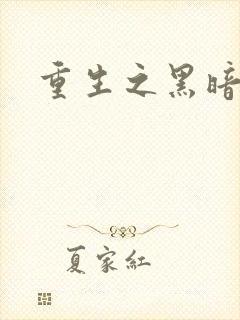 重生之黑暗
夏家红